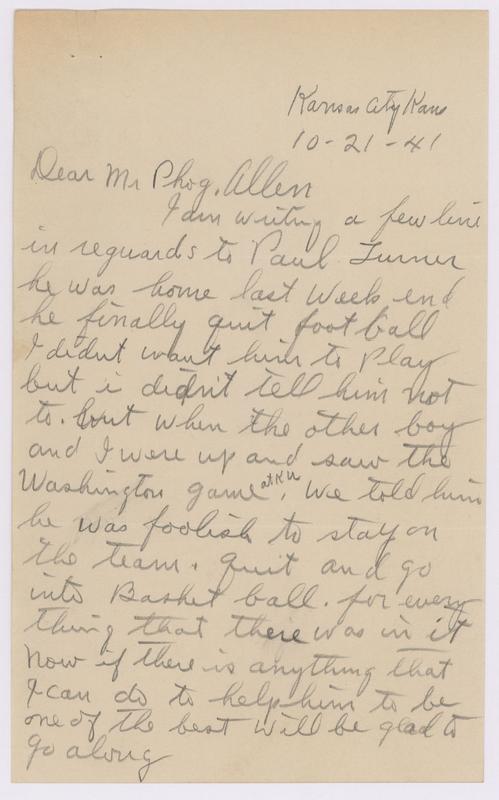 Kansas City Kans
10-21-41
Dear Mr Phog. Allen
I am writing a few line
in reguards to Paul Turner
he was home last week end
he finally quit foot ball
I didnt want him to play
but i didn't tell him not
to. but when the other boy
and I were up and saw the
Washington game at K U, We told him
he was foolish to stay on
the team. quit and go
into Basket ball. for every
thing that there was in it
Now if there is anything that
I can do to help him to be
one of the best will be glad to
go along